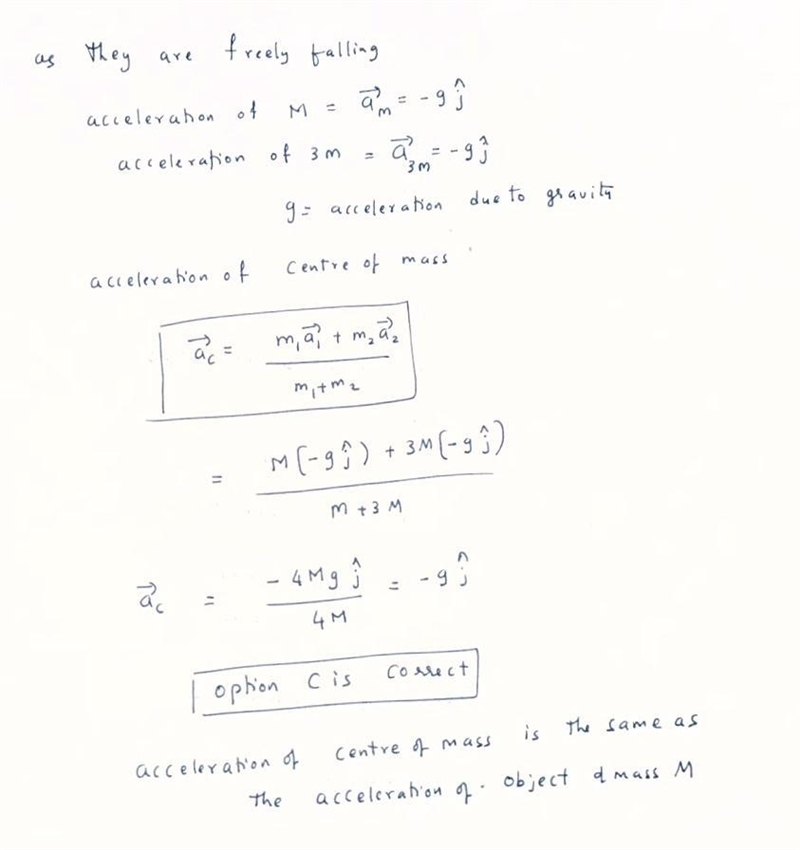 as they are freely falling
acceleration of M = a⃗m = -g ĵ
acceleration of 3m = a⃗3m = -g ĵ
g = acceleration due to gravity
acceleration of centre of mass
a⃗c = (m₁a⃗₁ + m₂a⃗₂) / (m₁+m₂)
= (M(-g ĵ) + 3M(-g ĵ)) / (m+3M)
a⃗c = (-4Mg ĵ) / (4M) = -g ĵ
option C is correct
acceleration of centre of mass is the same as
the acceleration of object of mass M